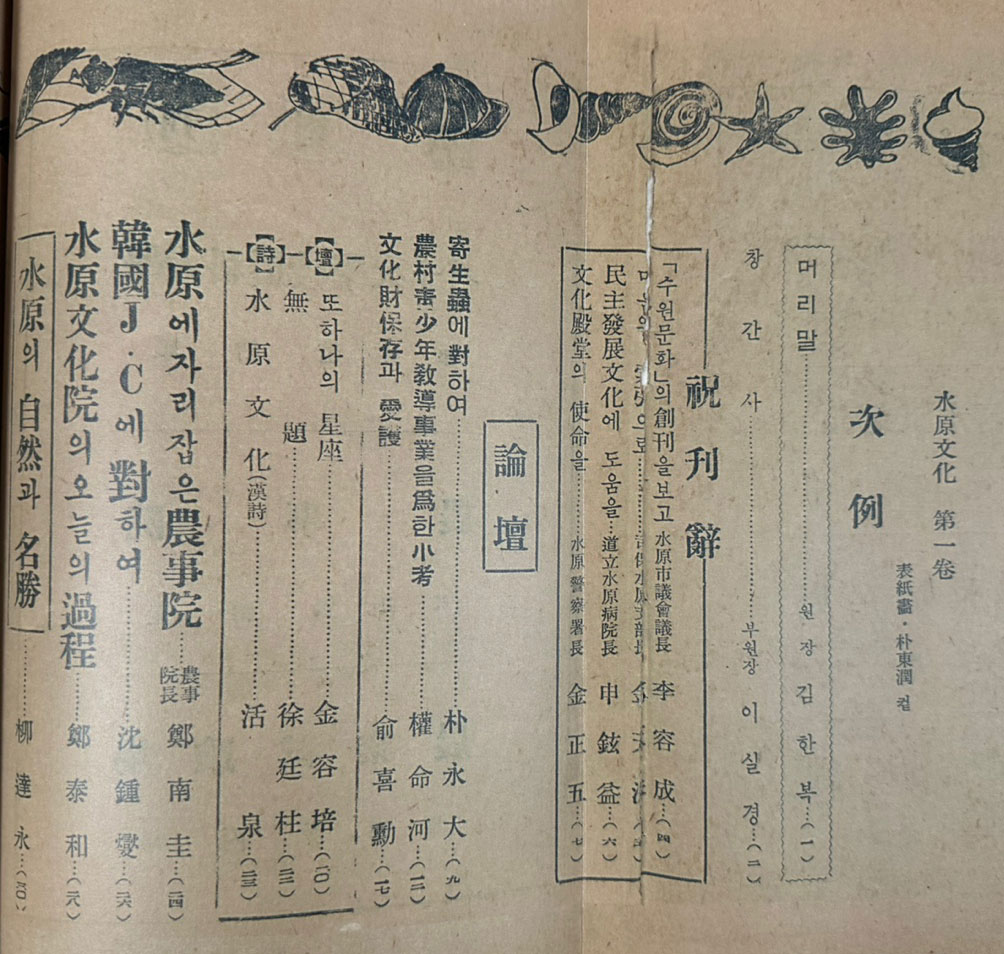 水原文化 第一卷
表紙畵・朴東潤 컽
次例
머리말……원장 김한복…(一)
창간사……부원장 이실경…(二)
祝刊辭
「수원문화」의 創刊을보고 水原市議會議長 李容成…(四)
水原 長
民主發展文化에 도움을…道立水原病院長 申鉉益…(六)
文化殿堂의 使命을……水原警察署長 金正五…(七)
論壇
寄生蟲에對하여……朴永大…(九)
農村靑少年敎導事業을爲한小考……權命河…(一二)
文化財保存과 愛護……俞喜勳…(一七)
【詩】【壇】
또하나의 星座……金容培…(二〇)
無題……徐廷柱…(二二)
水原文化(漢詩)……活泉…(二三)
水原에자리잡은農事院……農事院長 鄭南圭…(二四)
韓國J・C에對하여……沈鍾燮…(二六)
水原文化院의오늘의過程……鄭泰和…(二八)
水原의 自然과 名勝……柳達永…(四〇)